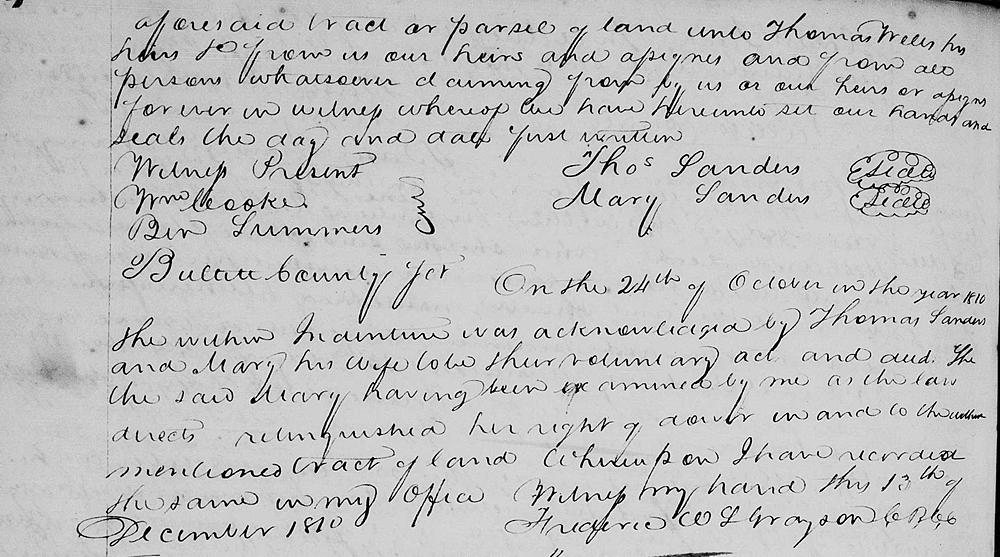 aforesaid tract or parsel of land unto Thomas Wells his
heirs &c from us our heirs and assignes and from all
persons whatsoever claiming from by us or our heirs or assigns
forever in witness whereof we have hereunto set our hands and
seals the day and date first written
Witness Present Thos Sanders Seal
Wm Cooke Mary Sanders Seal
Ben Summers
Bullitt County Sct On the 24th of October in the year 1810
the within Indenture was acknowledged by Thomas Sanders
and Mary his wife to be their voluntary act and deed. The
the said Mary having been examined by me as the law
directs relinquished her right of dower in and to the within
mentioned tract of land Whereupon I have recorded
the same in my office Witness my hand this 13th of
December 1810 Frederic W S Grayson C B C C